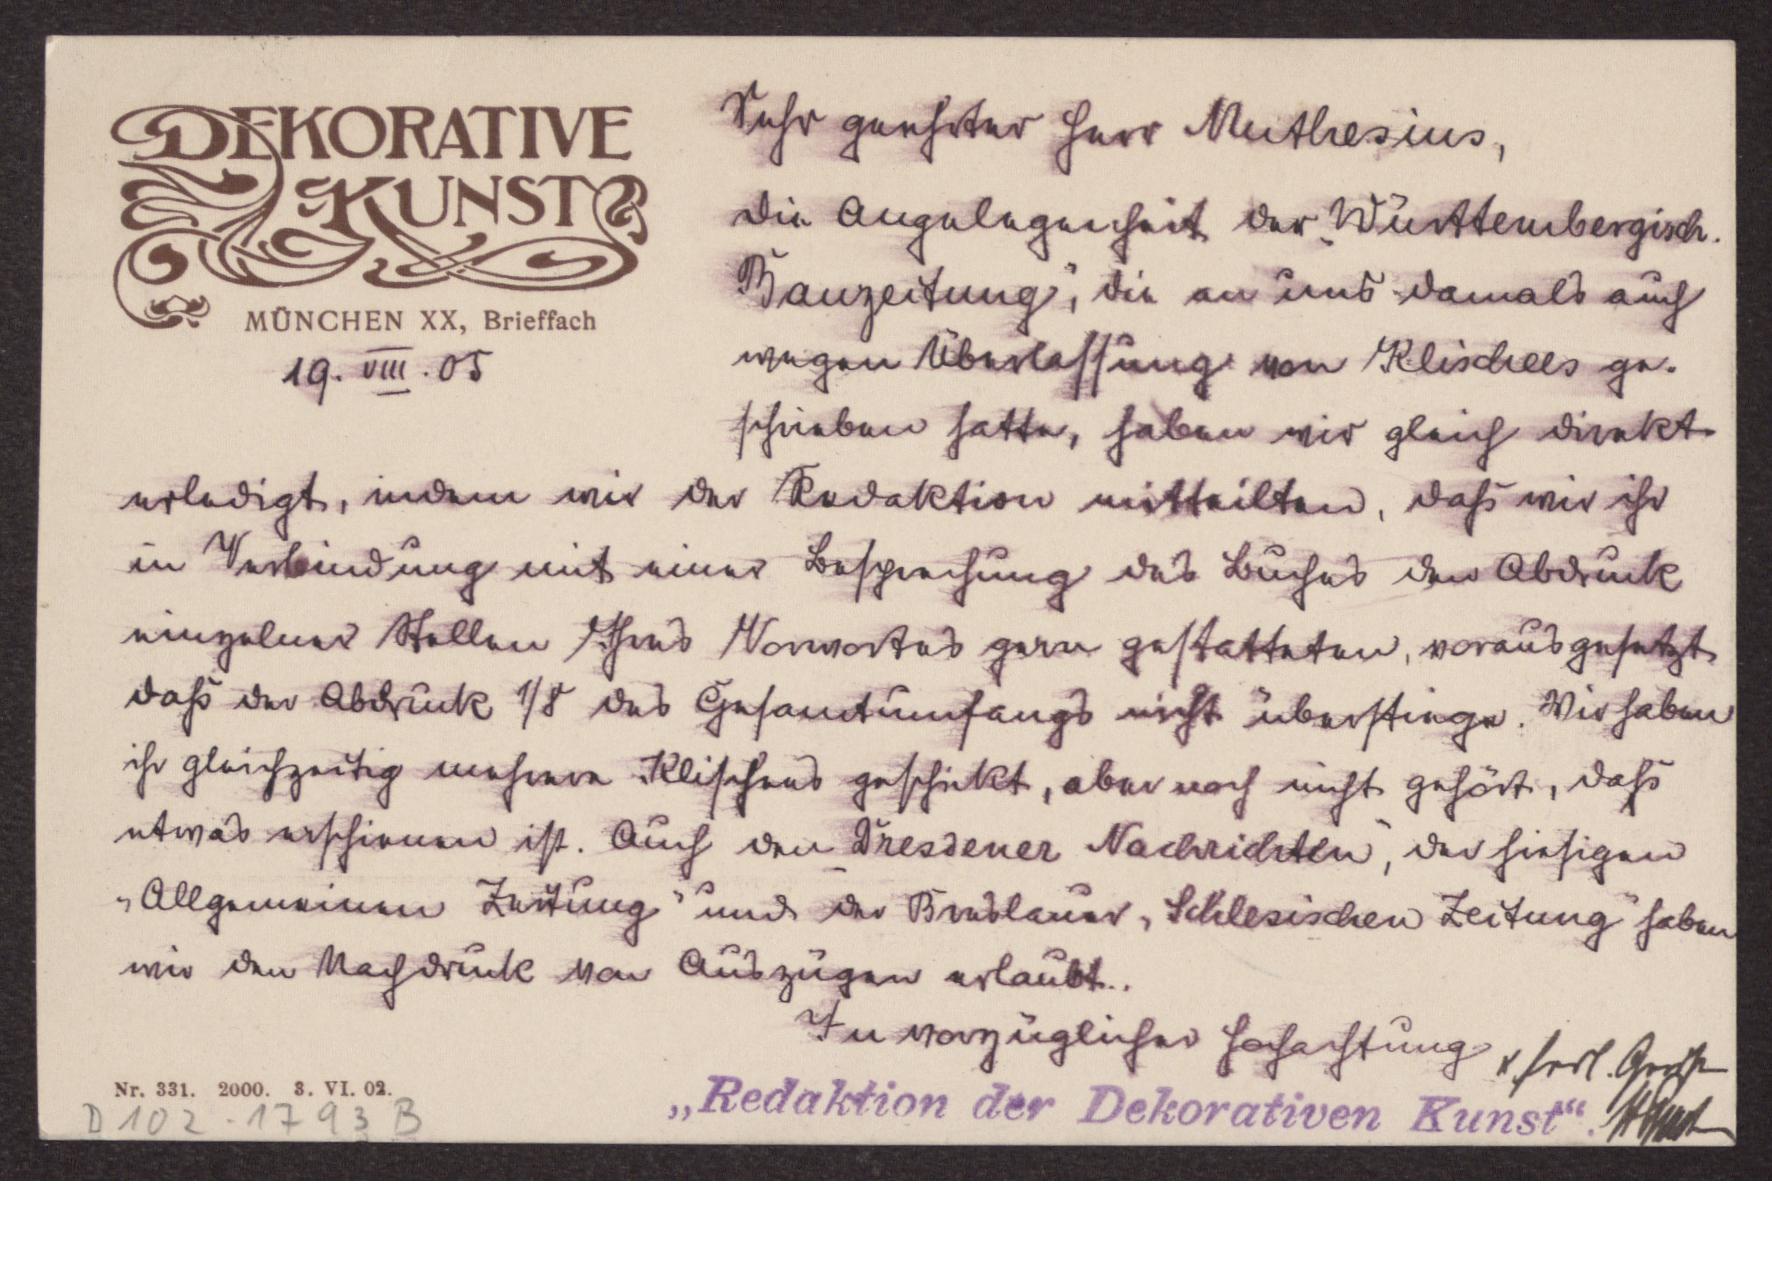 DEKORATIVE
KUNST
MÜNCHEN XX, Brieffach
19. VIII. 05
Sehr geehrter Herr Muthesius,
die Angelegenheit der „Württembergisch.
Bauzeitung“, die an uns damals auch
wegen Überlassung von Klischees ge-
schrieben hatte, haben wir gleich direkt
erledigt, indem wir der Redaktion mitteilten, daß wir ihr
in Verbindung mit einer Besprechung des Buches den Abdruck
einzelner Stellen Ihres Vorwortes gern gestatteten, vorausgesetzt
daß der Abdruck 1/8 des Gesamtumfangs nicht überstiege. Wir haben
ihr gleichzeitig mehrere Klischees geschickt, aber noch nicht gehört, daß
etwas erschienen ist. Auch den „Dresdener Nachrichten“, der hiesigen
„Allgemeinen Zeitung“ und der Breslauer „Schlesischen Zeitung“ haben
wir den Nachdruck von Auszügen erlaubt.
In vorzüglicher Hochachtung
„Redaktion der Dekorativen Kunst“.
Nr. 331. 2000. 3. VI. 02.
D 102-1793 B